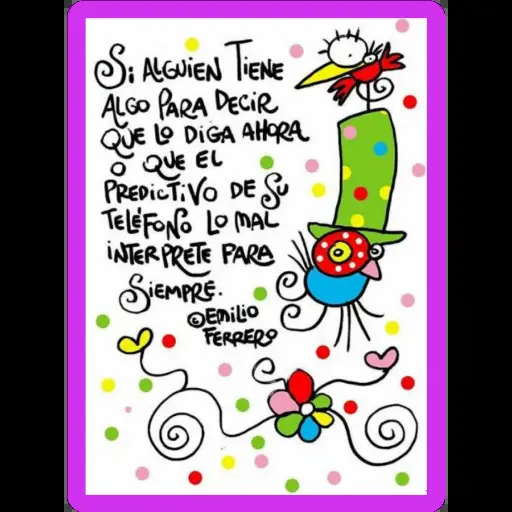 Si ALGUIEN TIENE
ALGO PARA DECIR
QUE LO DIGA AHORA
O QUE EL
PREDICTIVO DE SU
TELÉFONO LO MAL
INTERPRETE PARA
SIEMPRE.
©EMILIO
FERRERO